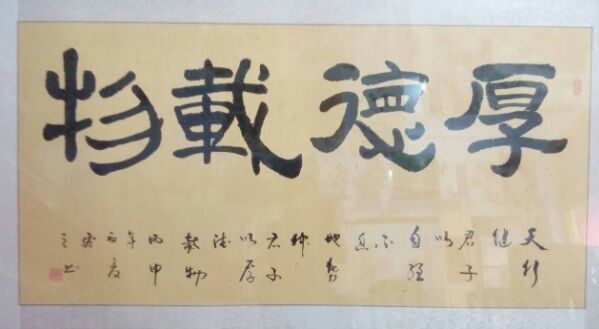 厚德載物
天行
健
君子
以
自強
不
息
地勢
坤
君子
以厚
德
載物
丙申
年
初夏
之書